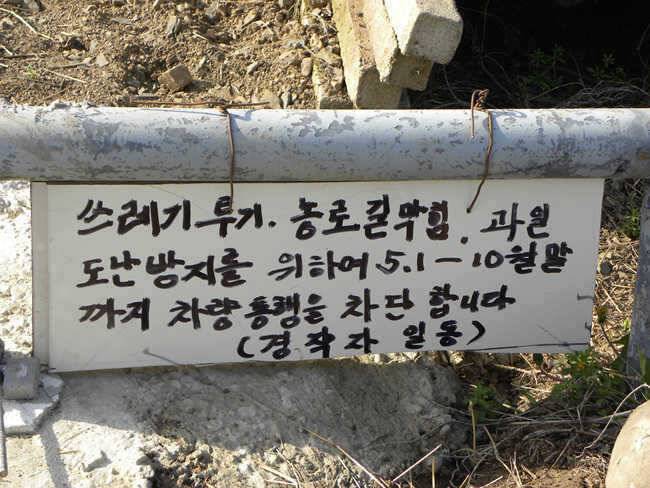 쓰레기 투기. 농로길막힘, 과일
도난방지를 위하여 5.1-10월말
까지 차량통행을 차단 합니다
(경작자 일동)